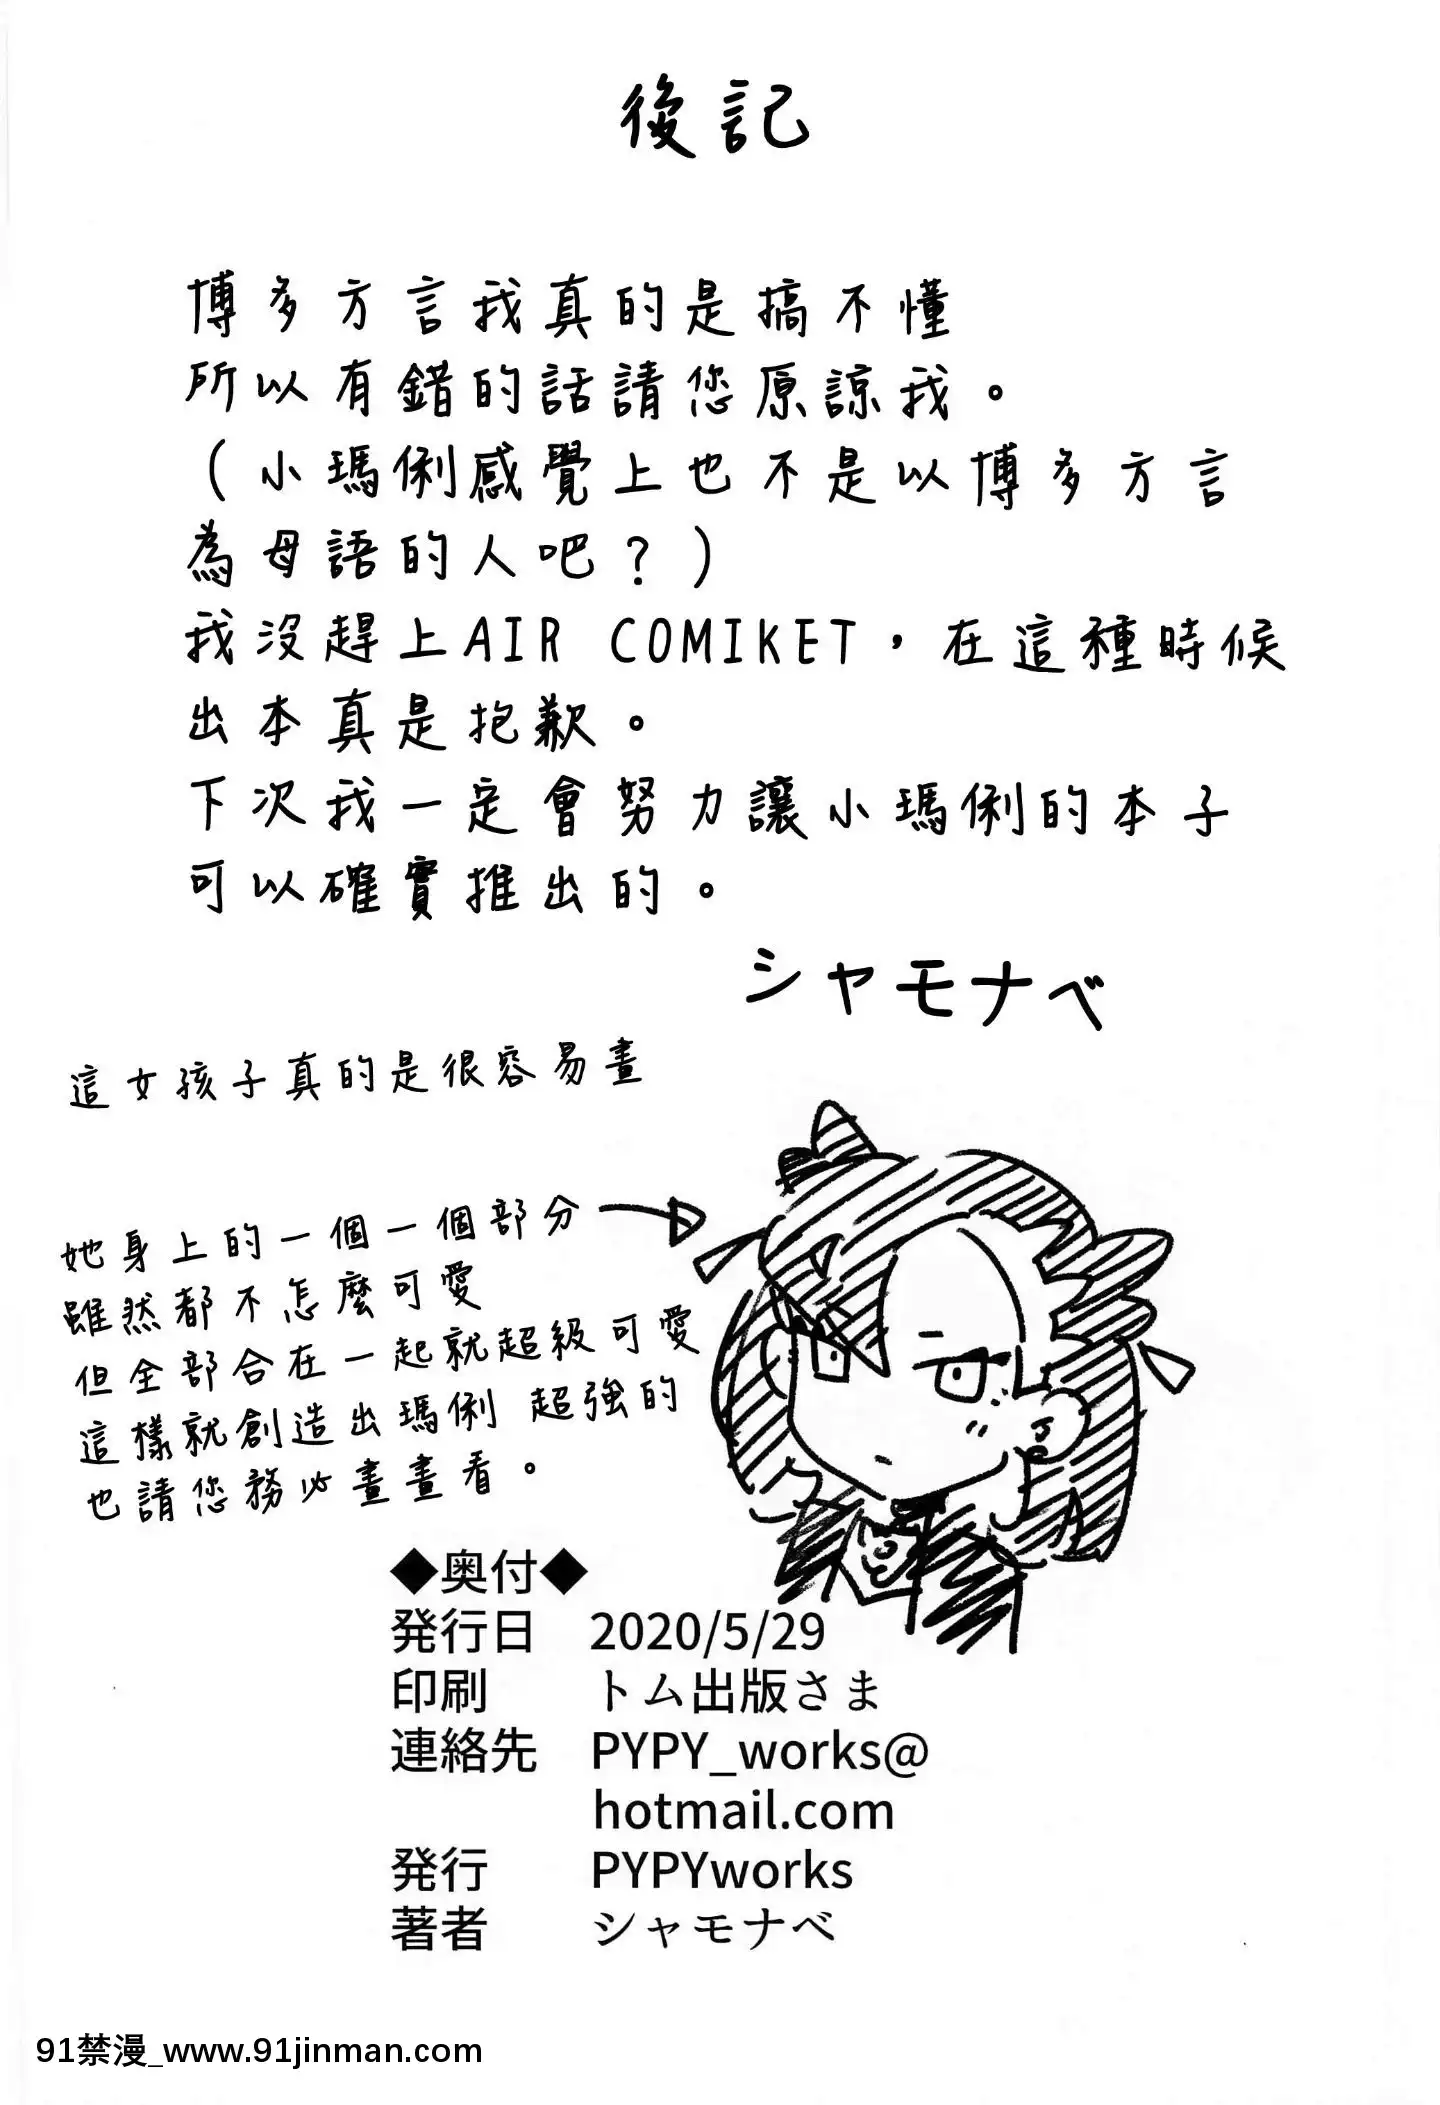 後記
博多方言我真的是搞不懂
所以有錯的話請您原諒我。
(小瑪俐感覺上也不是以博多方言
為母語的人吧?)
我沒趕上AIR COMIKET,在這種時候
出本真是抱歉。
下次我一定會努力讓小瑪俐的本子
可以確實推出的。
シャモナベ
這女孩子真的是很容易畫
她身上的一個一個部分
雖然都不怎麼可愛
但全部合在一起就超級可愛
這樣就創造出瑪俐 超強的
也請您務必畫畫看。
◆奥付◆
発行日 2020/5/29
印刷 トム出版さま
連絡先 PYPY_works@
hotmail.com
発行 PYPYworks
著者 シャモナベ
91禁漫_www.91jinman.com